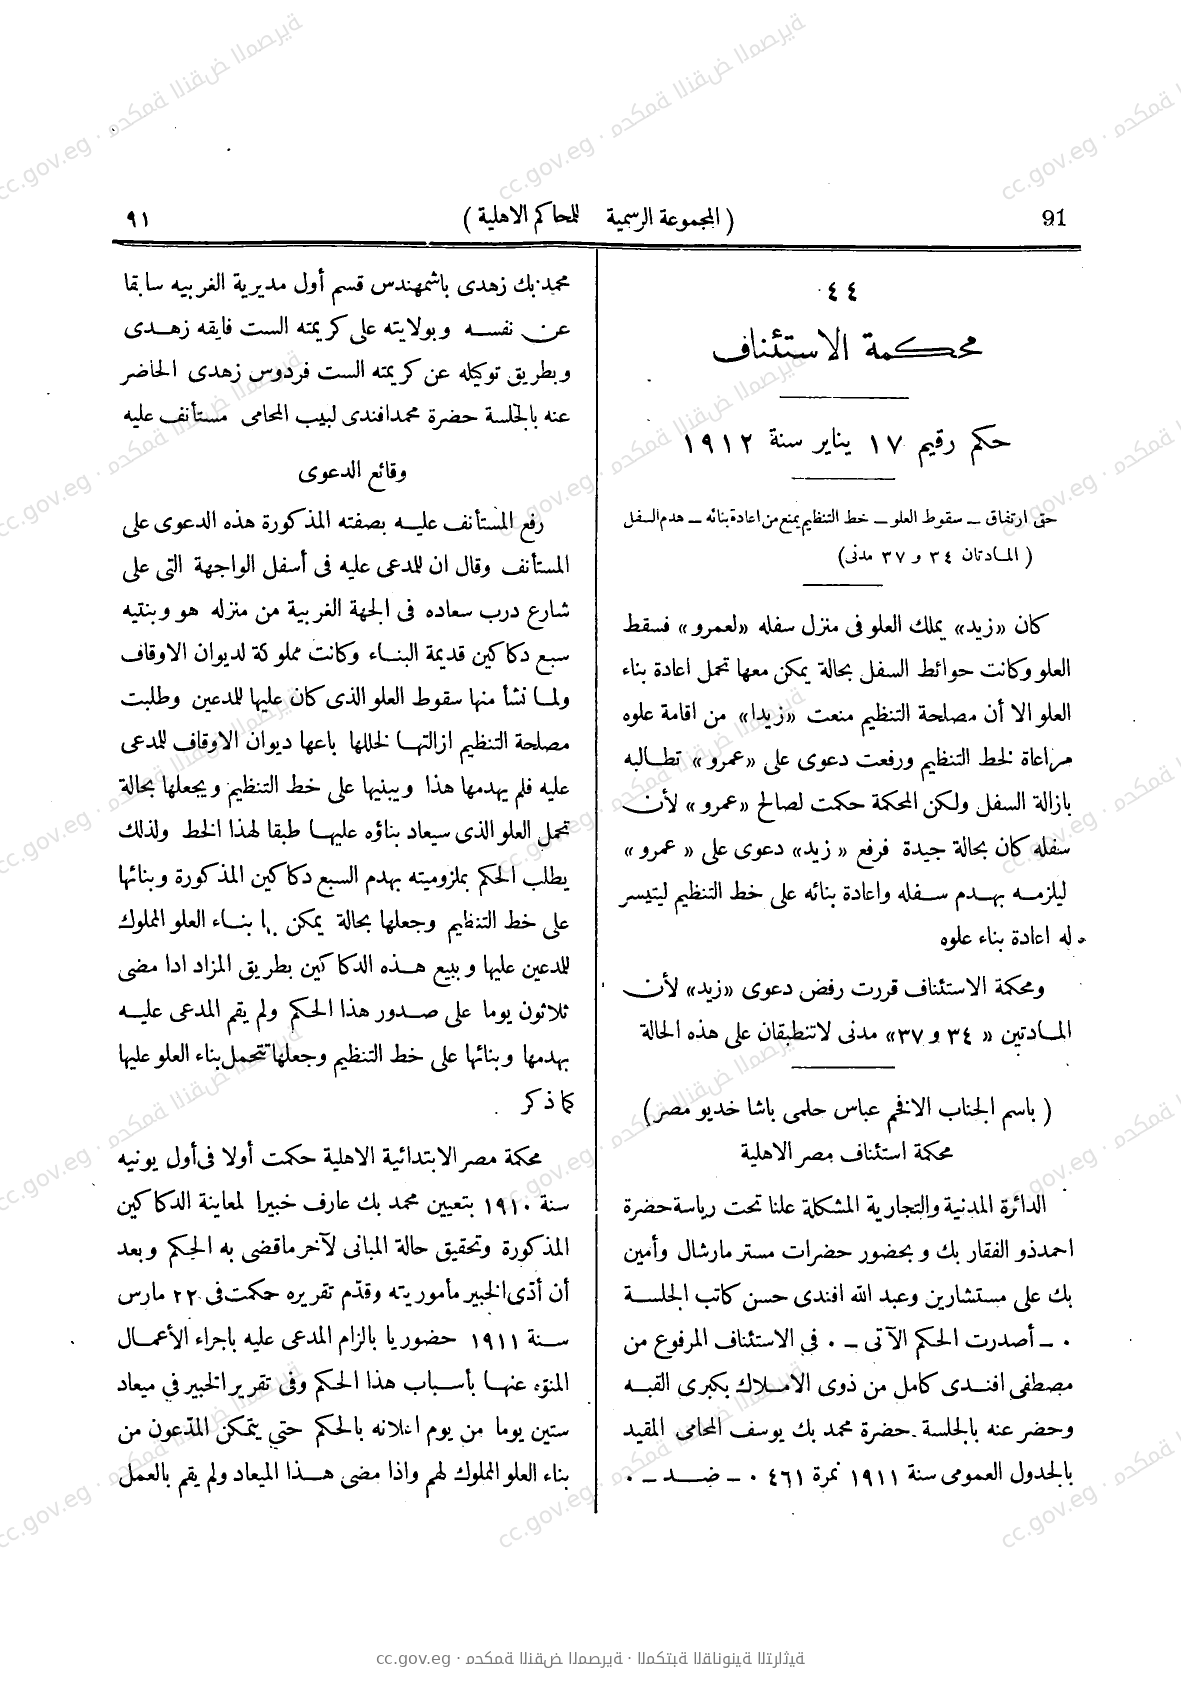 91 ( المجموعة الرسمية للمحاكم الاهلية ) ٩١
٤٤
محكمة الاستئناف
حكم رقيم ١٧ يناير سنة ١٩١٢
حق ارتفاق ــ سقوط العلو ــ خط التنظيم يمنع من اعادة بنائه ــ هدم السفل
( المادتان ٣٤ و ٣٧ مدنى)
كان «زيد» يملك العلو فى منزل سفله «لعمرو» فسقط
العلو وكانت حوائط السفل بحالة يمكن معها تحمل اعادة بناء
العلو الا أن مصلحة التنظيم منعت «زيدا» من اقامة علوه
مراعاة لخط التنظيم ورفعت دعوى على «عمرو» تطالبه
بازالة السفل ولكن المحكمة حكمت لصالح «عمرو» لأن
سفله كان بحالة جيدة فرفع « زيد» دعوى على « عمرو»
ليلزمه بهدم سفله واعادة بنائه على خط التنظيم ليتيسر
له اعادة بناء علوه
ومحكمة الاستئناف قررت رفض دعوى «زيد» لأن
المادتين « ٣٤ و ٣٧» مدنى لاتنطبقان على هذه الحالة
( باسم الجناب الافخم عباس حلمى باشا خديو مصر )
محكمة استئناف مصر الاهلية
الدائرة المدنية والتجارية المشكلة علنا تحت رياسة حضرة
احمد ذو الفقار بك وبحضور حضرات مستر مارشال وأمين
بك على مستشارين وعبد الله افندى حسن كاتب الجلسة
٠ ــ أصدرت الحكم الآتى ــ ٠ فى الاستئناف المرفوع من
مصطفى افندى كامل من ذوى الاملاك بكبرى القبه
وحضر عنه بالجلسة حضرة محمد بك يوسف المحامى المقيد
بالجدول العمومى سنة ١٩١١ نمرة ٤٦١ ٠ ــ ضد ــ ٠
محمد بك زهدى باشمهندس قسم أول مديرية الغربيه سابقا
عن نفسه وبولايته على كريمته الست فايقه زهدى
وبطريق توكيله عن كريمته الست فردوس زهدى الحاضر
عنه بالجلسة حضرة محمد افندى لبيب المحامى مستأنف عليه
وقائع الدعوى
رفع المستأنف عليه بصفته المذكورة هذه الدعوى على
المستأنف وقال ان للمدعى عليه فى أسفل الواجهة التى على
شارع درب سعاده فى الجهة الغربية من منزله هو وبنتيه
سبع دكاكين قديمة البناء وكانت مملوكة لديوان الاوقاف
ولما نشأ منها سقوط العلو الذى كان عليها للمدعين وطلبت
مصلحة التنظيم ازالتها لخللها باعها ديوان الاوقاف للمدعى
عليه فلم يهدمها هذا ويبنيها على خط التنظيم ويجعلها بحالة
تحمل العلو الذى سيعاد بناؤه عليها طبقا لهذا الخط ولذلك
يطلب الحكم بملزوميته بهدم السبع دكاكين المذكورة وبنائها
على خط التنظيم وجعلها بحالة يمكن بناء العلو المملوك
للمدعين عليها وبيع هذه الدكاكين بطريق المزاد اذا مضى
ثلاثون يوما على صدور هذا الحكم ولم يقم المدعى عليه
بهدمها وبنائها على خط التنظيم وجعلها تتحمل بناء العلو عليها
كما ذكر
محكمة مصر الابتدائية الاهلية حكمت أولا فى أول يونيه
سنة ١٩١٠ بتعيين محمد بك عارف خبيرا لمعاينة الدكاكين
المذكورة وتحقيق حالة المبانى لآخر ماقضى به الحكم وبعد
أن أدّى الخبير مأموريته وقدّم تقريره حكمت فى ٢٢ مارس
سنة ١٩١١ حضوريا بالزام المدعى عليه باجراء الأعمال
المنوّه عنها بأسباب هذا الحكم وفى تقرير الخبير في ميعاد
ستين يوما من يوم اعلانه بالحكم حتى يتمكن المدّعون من
بناء العلو المملوك لهم واذا مضى هذا الميعاد ولم يقم بالعمل
cc.gov.eg · محكمة النقض المصرية · المكتبة القانونية التراثية